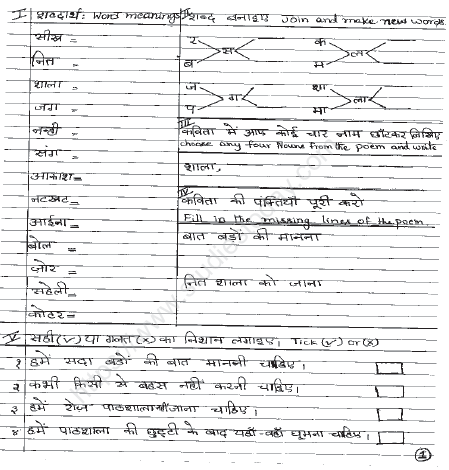 I शब्दार्थ: Word meanings
सीख =
नित =
शाला =
जग =
नन्ही =
संग =
आकाश =
नटखट =
आईना =
बोल =
ज़ोर =
सहेली =
कोटर =
II शब्द बनाइए Join and make new words.
र स
ब
क ल
म
ज ग
प
शा ला
मा
III
कविता में आए कोई चार नाम छाँटकर लिखिए
choose any four Nouns from the poem and write
शाला,
IV
कविता की पंक्तियाँ पूरी करो
Fill in the missing lines of the poem
बात बड़ों की मानना
नित शाला को जाना
V सही (√) या गलत (x) का निशान लगाइए। Tick (√) or (x)
१ हमें सदा बड़ों की बात माननी चाहिए।
२ कभी किसी से बहस नहीं करनी चाहिए।
३ हमें रोज़ पाठशाला जाना चाहिए।
४ हमें पाठशाला की छुट्टी के बाद यहाँ-वहाँ घूमना चाहिए।
1